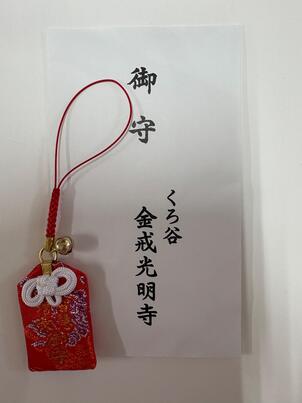 御守
くろ谷
金戒光明寺